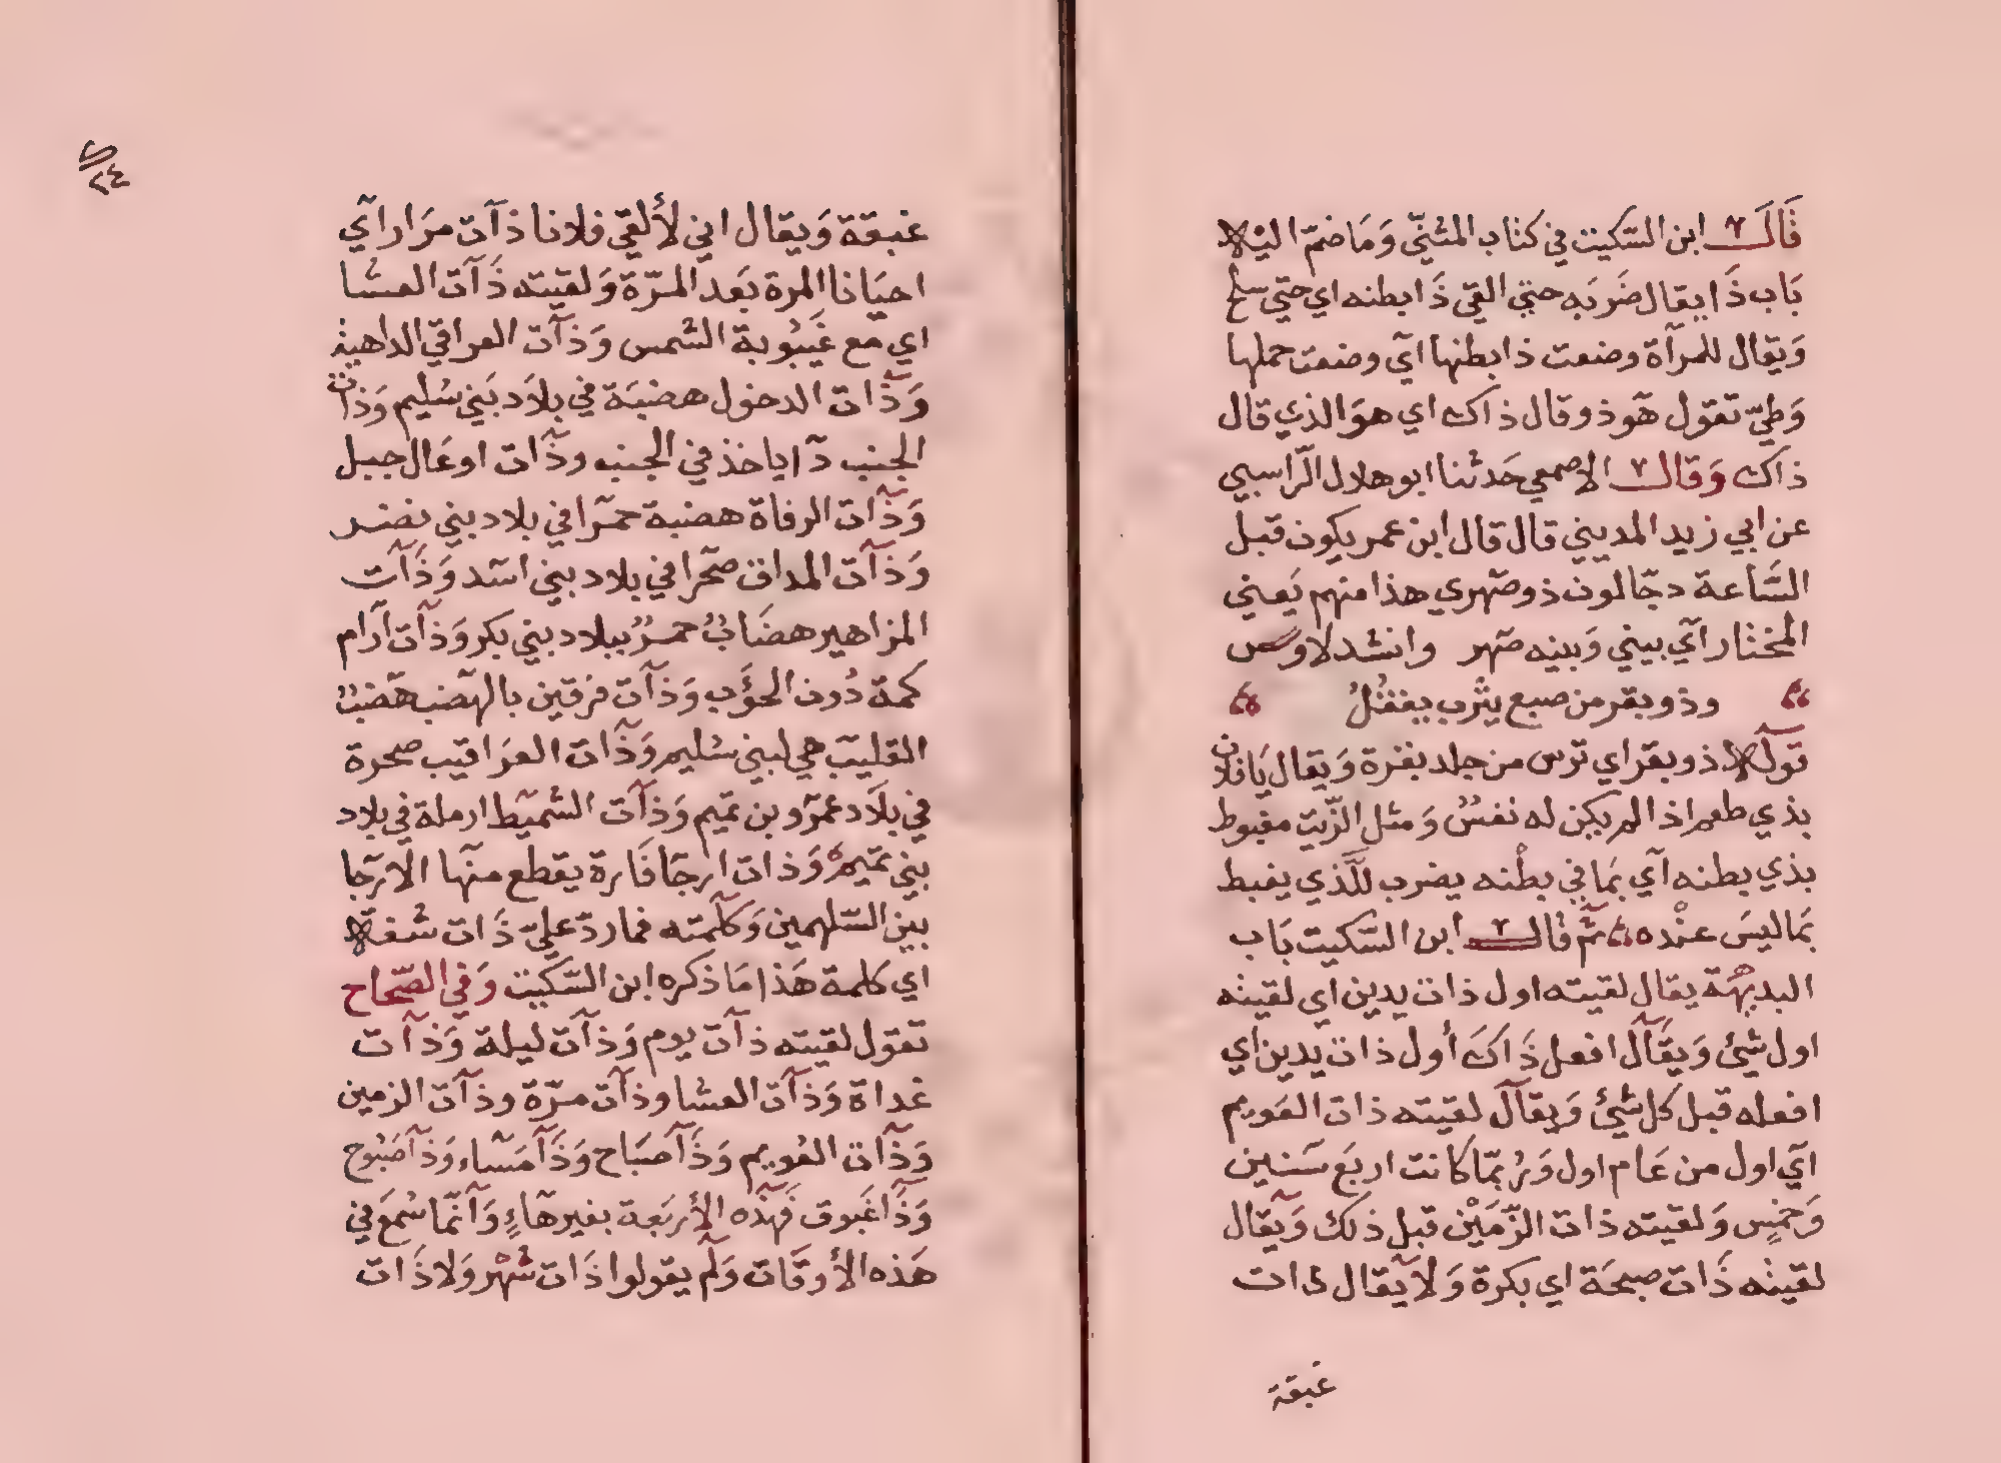 قَالَ ابن السّكيت في كتاب المثنّى وَمَا ضمّ اليه
بَاب ذَا يقال ضَربَه حتي القي ذَا بطنه اي حتي سلح
وَيقال للمرآة وضعت ذا بطنها آي وضعت حملها
وَطيّ تقول هو ذو قال ذاك اي هوَ الذي قال
ذاك وَقال الاصمعي حَدثنا ابو هلال الرّاسبي
عن ابي زيد المديني قال قال ابن عمر يكون قبل
السَّاعة دجّالون ذو صهري هذا منهم يَعني
المختار آي بيني وَبينه صهر وانشد لاوس
وذو بقر من صبع يثرب يفقثلُ
قوله ذو بقر اي ترس من جلد بقرة وَيقال يَا فلان
بذي طعم اذا لم يكن له نفسٌ وَمثل الزّيت مغبوط
بذي بطنه آي بمَا في بطْنه يضرب للَّذي يغبط
بمَا ليسَ عنْده ثمّ قال ابن السّكيت بَاب
البديهَة يقال لقيته اول ذات يدين اي لقيته
اول شئ وَيقَال افعل ذَاكَ أول ذات يدين اي
افعله قبل كل شئ وَيقال لقيته ذات العَويم
آي اول من عَام اول وَرُبمّا كانت اربَع سَنين
وَخمسٍ وَلقيته ذات الزّمَيْن قبل ذلك وَيقال
لقيته ذَات صبحَة اي بكرة وَلا يقال ذات
غبقة
غبقة وَيقال اني لألقي فلانا ذآت مرَار آي
احيَانا المرة بَعد المرّة وَلقيته ذَآت العشا
اي مع غَيبُوبة الشمس وَذآت العراقي الداهية
وَذات الدخول هضبَة في بلاَد بَني سليم وَذات
الجنب دآ ياخذ في الجنب وذآت اوعَال جبل
وَذآت الرفاة هضبة حمرَا في بلاد بني نصر
وَذآت المداق صحّرا في بلاد بني اسَد وَذَآت
المزاهير هضَابٌ حمرٌ ببلاد بني بكر وَذآت آرَام
كمة دُون الحوَّب وَذآت فرقين بالهضب هَضب
القليبَ هي لبني سليم وَذَات العرَاقيب صحرة
في بلَاد عمَرو بن تميم وَذآت الشميَط ارملة في بلاد
بني تميم وَذات ارجَا قَارة يقطع منهَا الارَجا
بين السّلهمين وَكلّمته فما ردّ عليّ ذَات شفة
اي كلمة هَذا مَا ذكره ابن السّكيت وَفي الصّحاح
تقول لقيته ذآت يوم وَذآت ليلة وَذآت
غداة وَذآت العشا وذآت مرّة وذآت الزمين
وَذآت العُويم وَذَآ صبَاح وَذَآ مَسَاء وَذَآ صَبُوح
وَذَآ غَبوق فَهذه الأربَعة بغير هَاءٍ وَآنّمَا سُمعَ في
هَذه الأوقَات وَلَم يقولوا ذَات شهْر وَلا ذَات